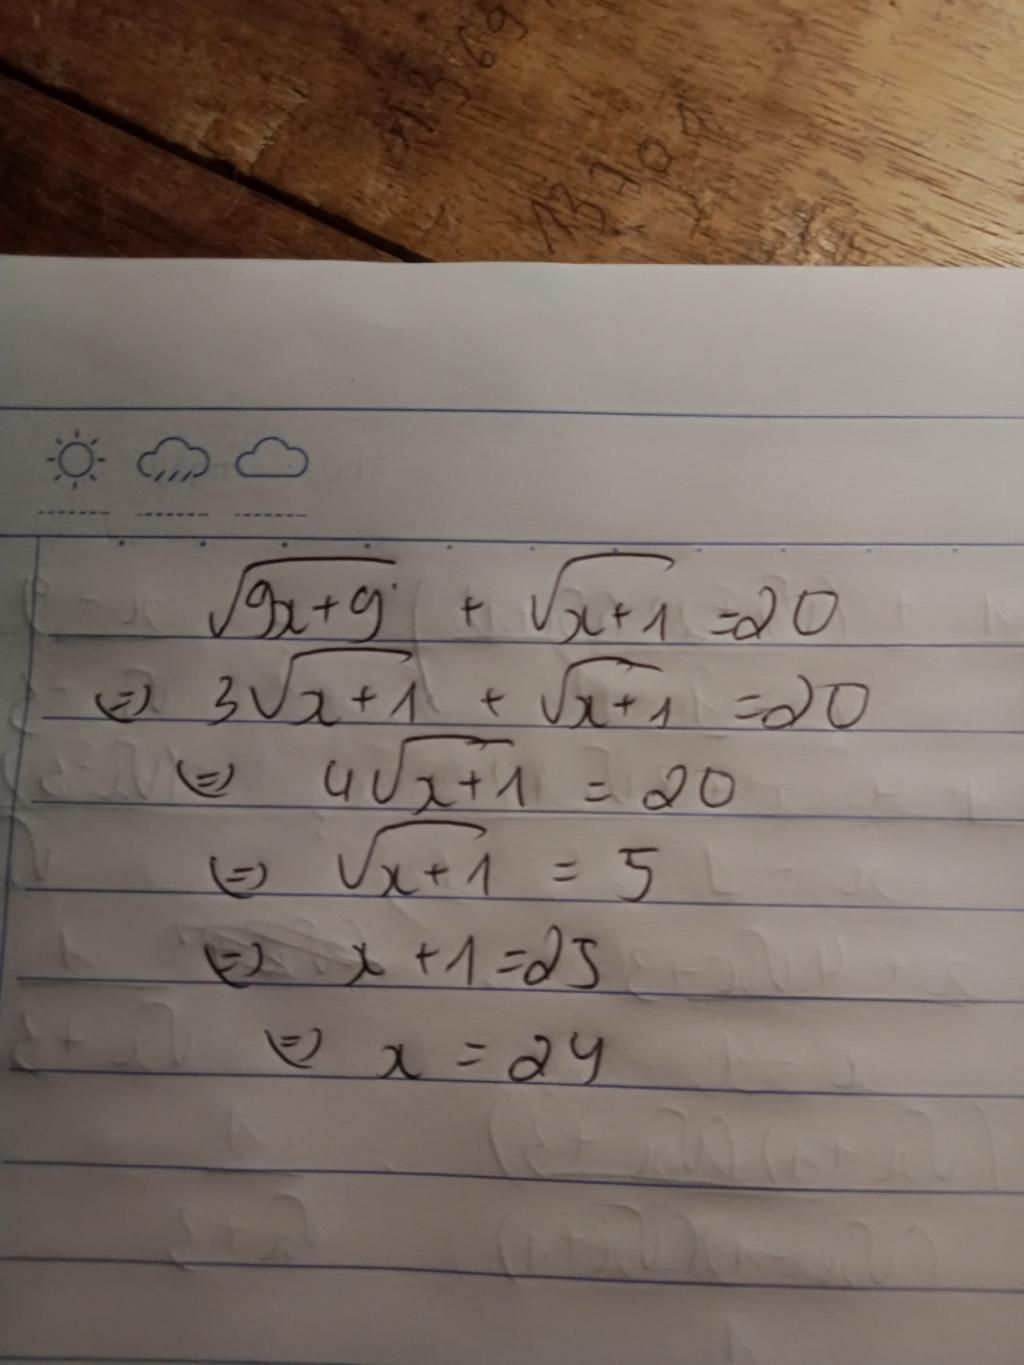 √(9x+9) + √(x+1) = 20
⇔ 3√(x+1) + √(x+1) = 20
⇔ 4√(x+1) = 20
⇔ √(x+1) = 5
⇔ x + 1 = 25
⇔ x = 24